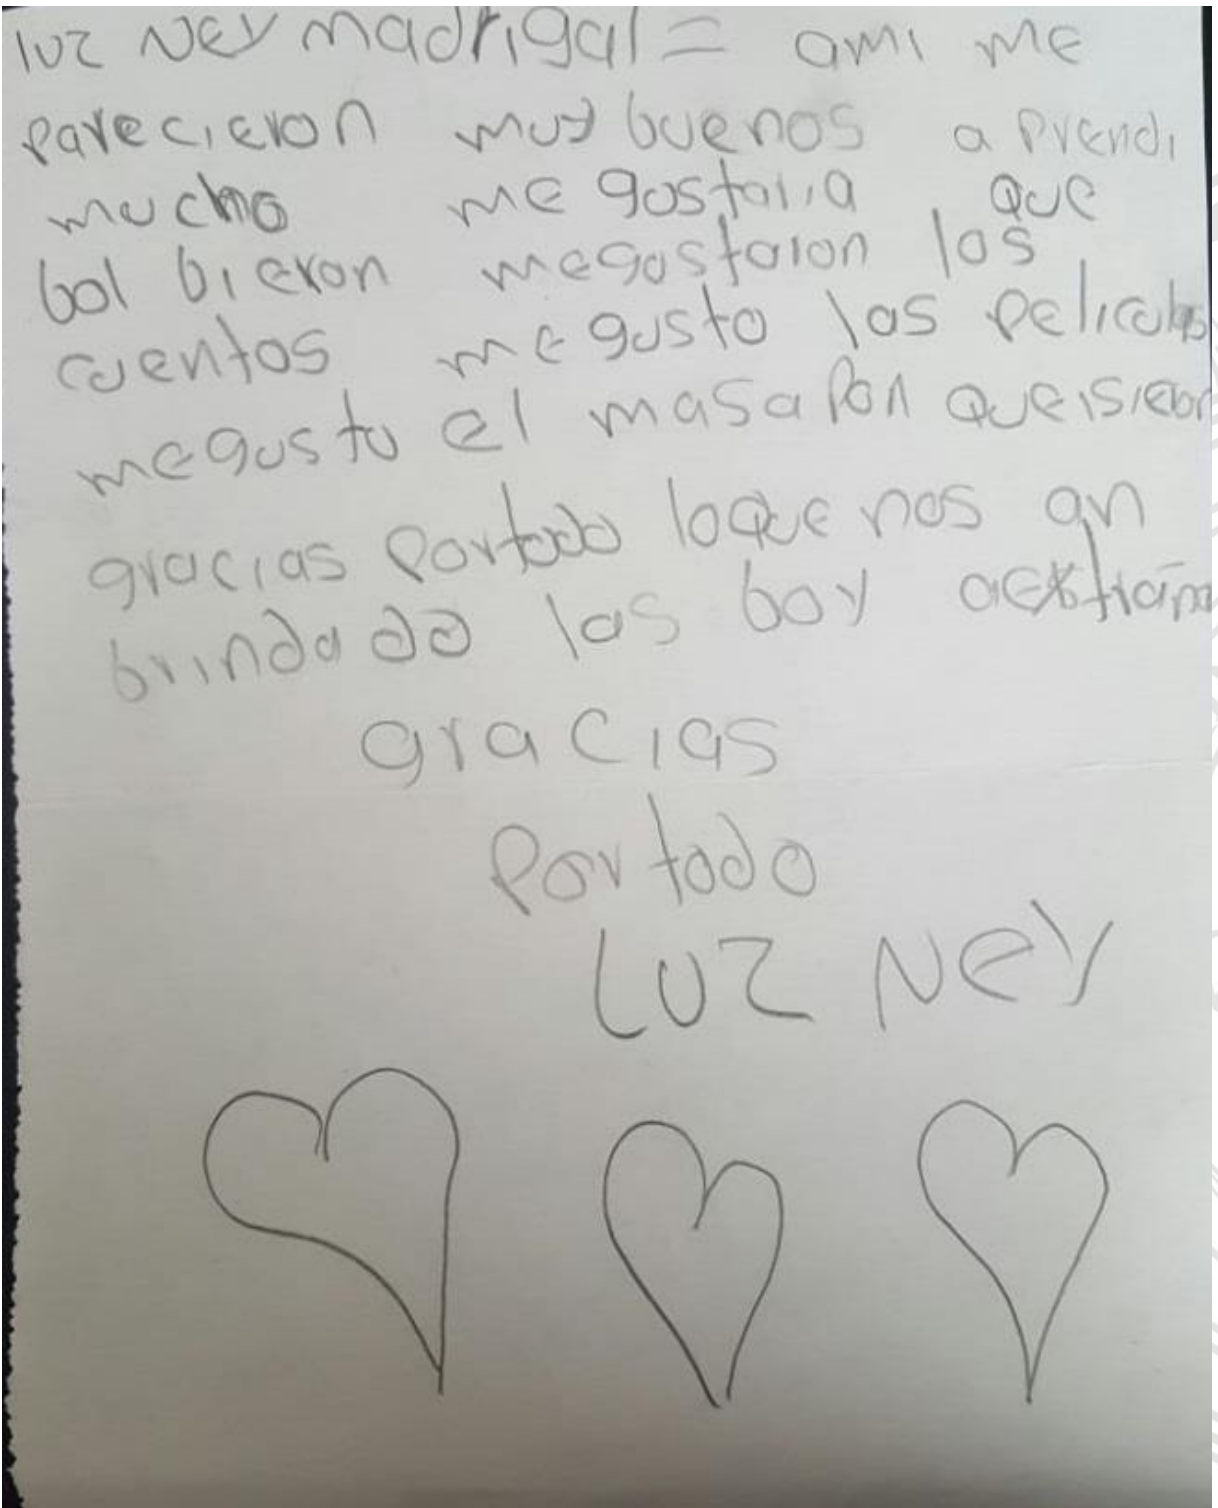 luz Ney madrigal = ami me
parecieron muy buenos a prendi
mucho me gostaria que
bol bieron megostaron los
cuentos me gusto las peliculas
megusto el masa pan
gracias portodo loque nos an
brindado las boy
gracias
Por todo
LUZ NEY